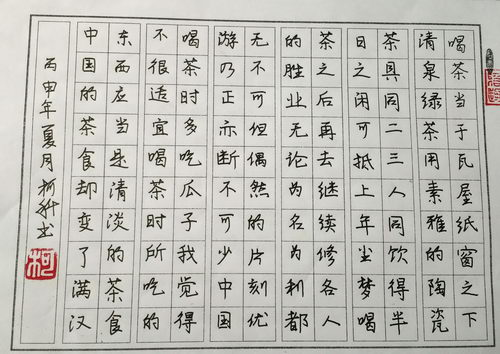 喝茶当于瓦屋纸窗之下
清泉绿茶用素雅的陶瓷
茶具同二三人同饮得半
日之闲可抵上年尘梦喝
茶之后再去继续修各人
的胜业无论为名为利都
无不可但偶然的片刻优
游乃正亦断不可少中国
喝茶时多吃瓜子我觉得
不很适宜喝茶时所吃的
东西应当是清淡的茶食
中国的茶食却变了满汉
丙申年夏月柯书
柯